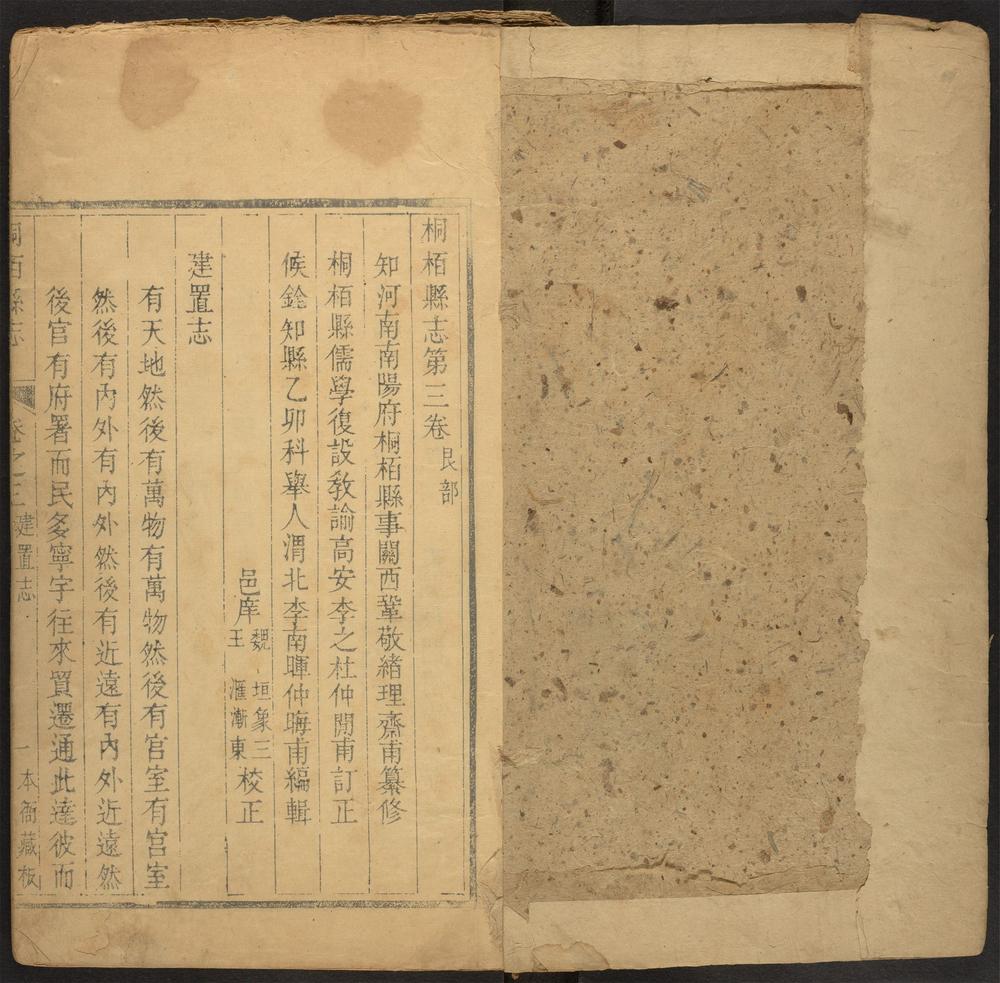 桐栢縣志第三卷 艮部
知河南南陽府桐栢縣事關西鞏敬緒理齋甫纂修
桐栢縣儒學復設敎諭高安李之杜仲閒甫訂正
候銓知縣乙卯科舉人渭北李南暉仲晦甫編輯
邑庠 魏垣象三 王滙漸東 校正
建置志
有天地然後有萬物有萬物然後有宫室有宫室
然後有內外有內外然後有近遠有內外近遠然
後官有府署而民多寧宇往來貿遷通此達彼而
桐栢縣志 卷之三 建置志 一 本衙藏板